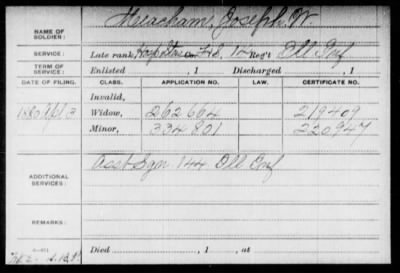 NAME OF SOLDIER: Meacham, Joseph W.
SERVICE: Late rank, Hosp Stew F&S, 12 Reg't Ill Inf
TERM OF SERVICE: Enlisted , 1 Discharged , 1
DATE OF FILING. CLASS. APPLICATION NO. LAW. CERTIFICATE NO.
Invalid,
1880 3 Widow, 262 664 219409
Minor, 334 801 220947
ADDITIONAL SERVICES: Asst Sgn 144 Ill Inf
REMARKS:
Died , 1 , at